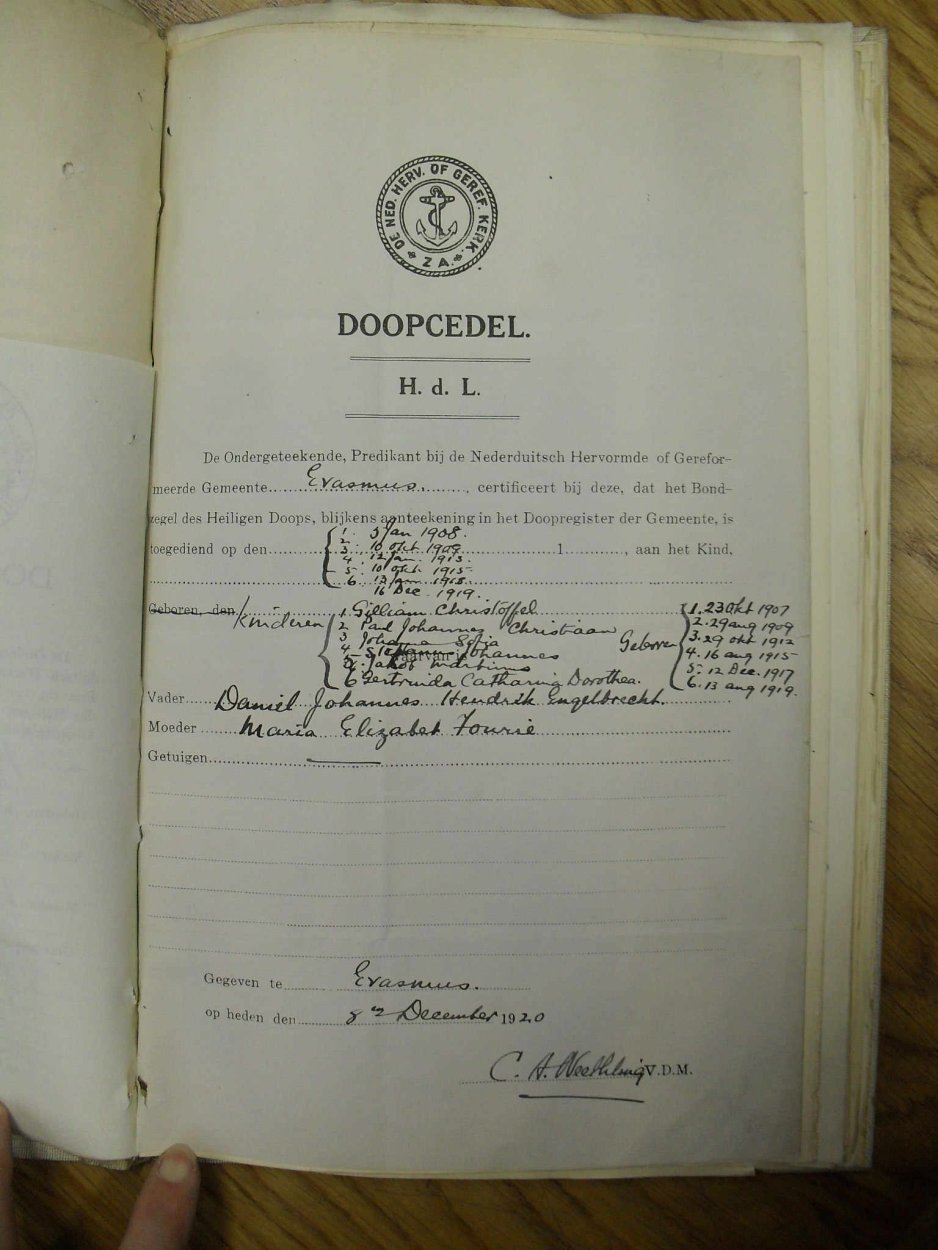 DE NED. HERV. OF GEREF. KERK. Z A.
DOOPCEDEL.
H. d. L.
De Ondergeteekende, Predikant bij de Nederduitsch Hervormde of Gerefor-
meerde Gemeente Erasmus., certificeert bij deze, dat het Bond-
zegel des Heiligen Doops, blijkens aanteekening in het Doopregister der Gemeente, is
1. 5 Jan 1908.
2. 10 Okt 1909
toegediend op den 3. 12 Jan. 1913. 1, aan het Kind,
4. 10 Okt. 1915
5. 13 Jan. 1918.
6. 16 Dec. 1919.
Geboren, den Kinderen
1. Gilliam Christoffel 1. 23 Okt 1907
2 Paul Johannes Christiaan 2. 29 aug 1909
3 Sofia Geboren 3. 29 okt 1912
4 Johannes 4. 16 aug 1915
5. Jakob Marthinus 5. 12 Dec. 1917
6 Gertruida Catharina Dorothea. 6. 13 aug 1919.
Vader Daniel Johannes Hendrik Engelbrecht.
Moeder Maria Elizabet Fourie
Getuigen
Gegeven te Erasmus.
op heden den 8en December 1920
C. A. Neethling V.D.M.